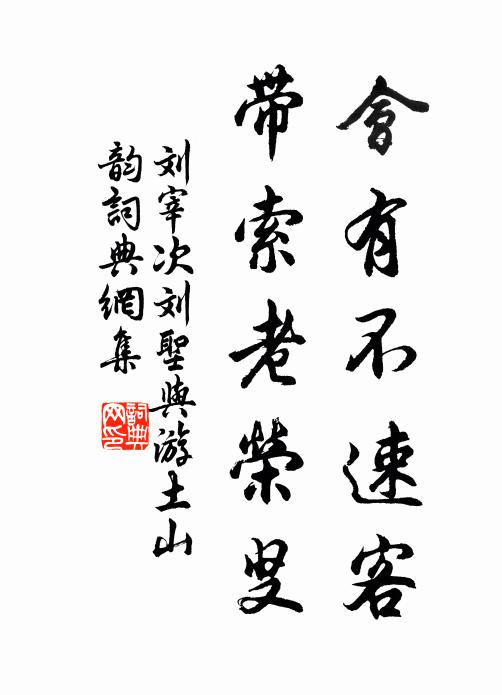 會有不速客
带索老榮叟
刘宰次刘聖與游土山
韵詞典網集
詞典网印